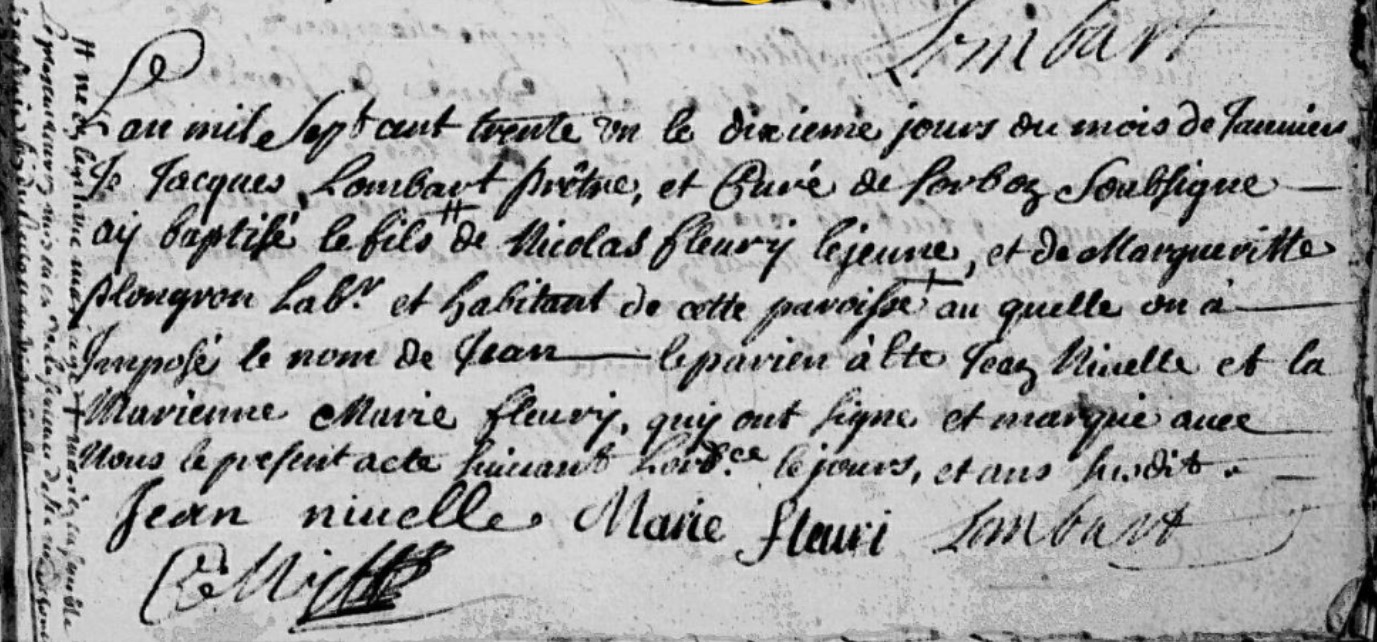 Lombart
Lan mile Sept cent trente un le dixieme jours du mois de Januier
Je Jacques Lombart prêtre, et Curé de Sorbon Soubsigne
aij baptisé le fils # de Nicolas fleurij lejeune, et de Margueritte
plongron Labr et habitant de cette paroisse + au quelle on à
Imposé le nom de Jean le parien à ete Jean Niuelle et la
Marienne Marie fleurij, quij ont signe et marquie auec
Nous le present acte suiuant Lordce le jours, et ans susdit.
Jean niuelle Marie fleuri Lombart
# ne du legitime mariage + mariez ensemble